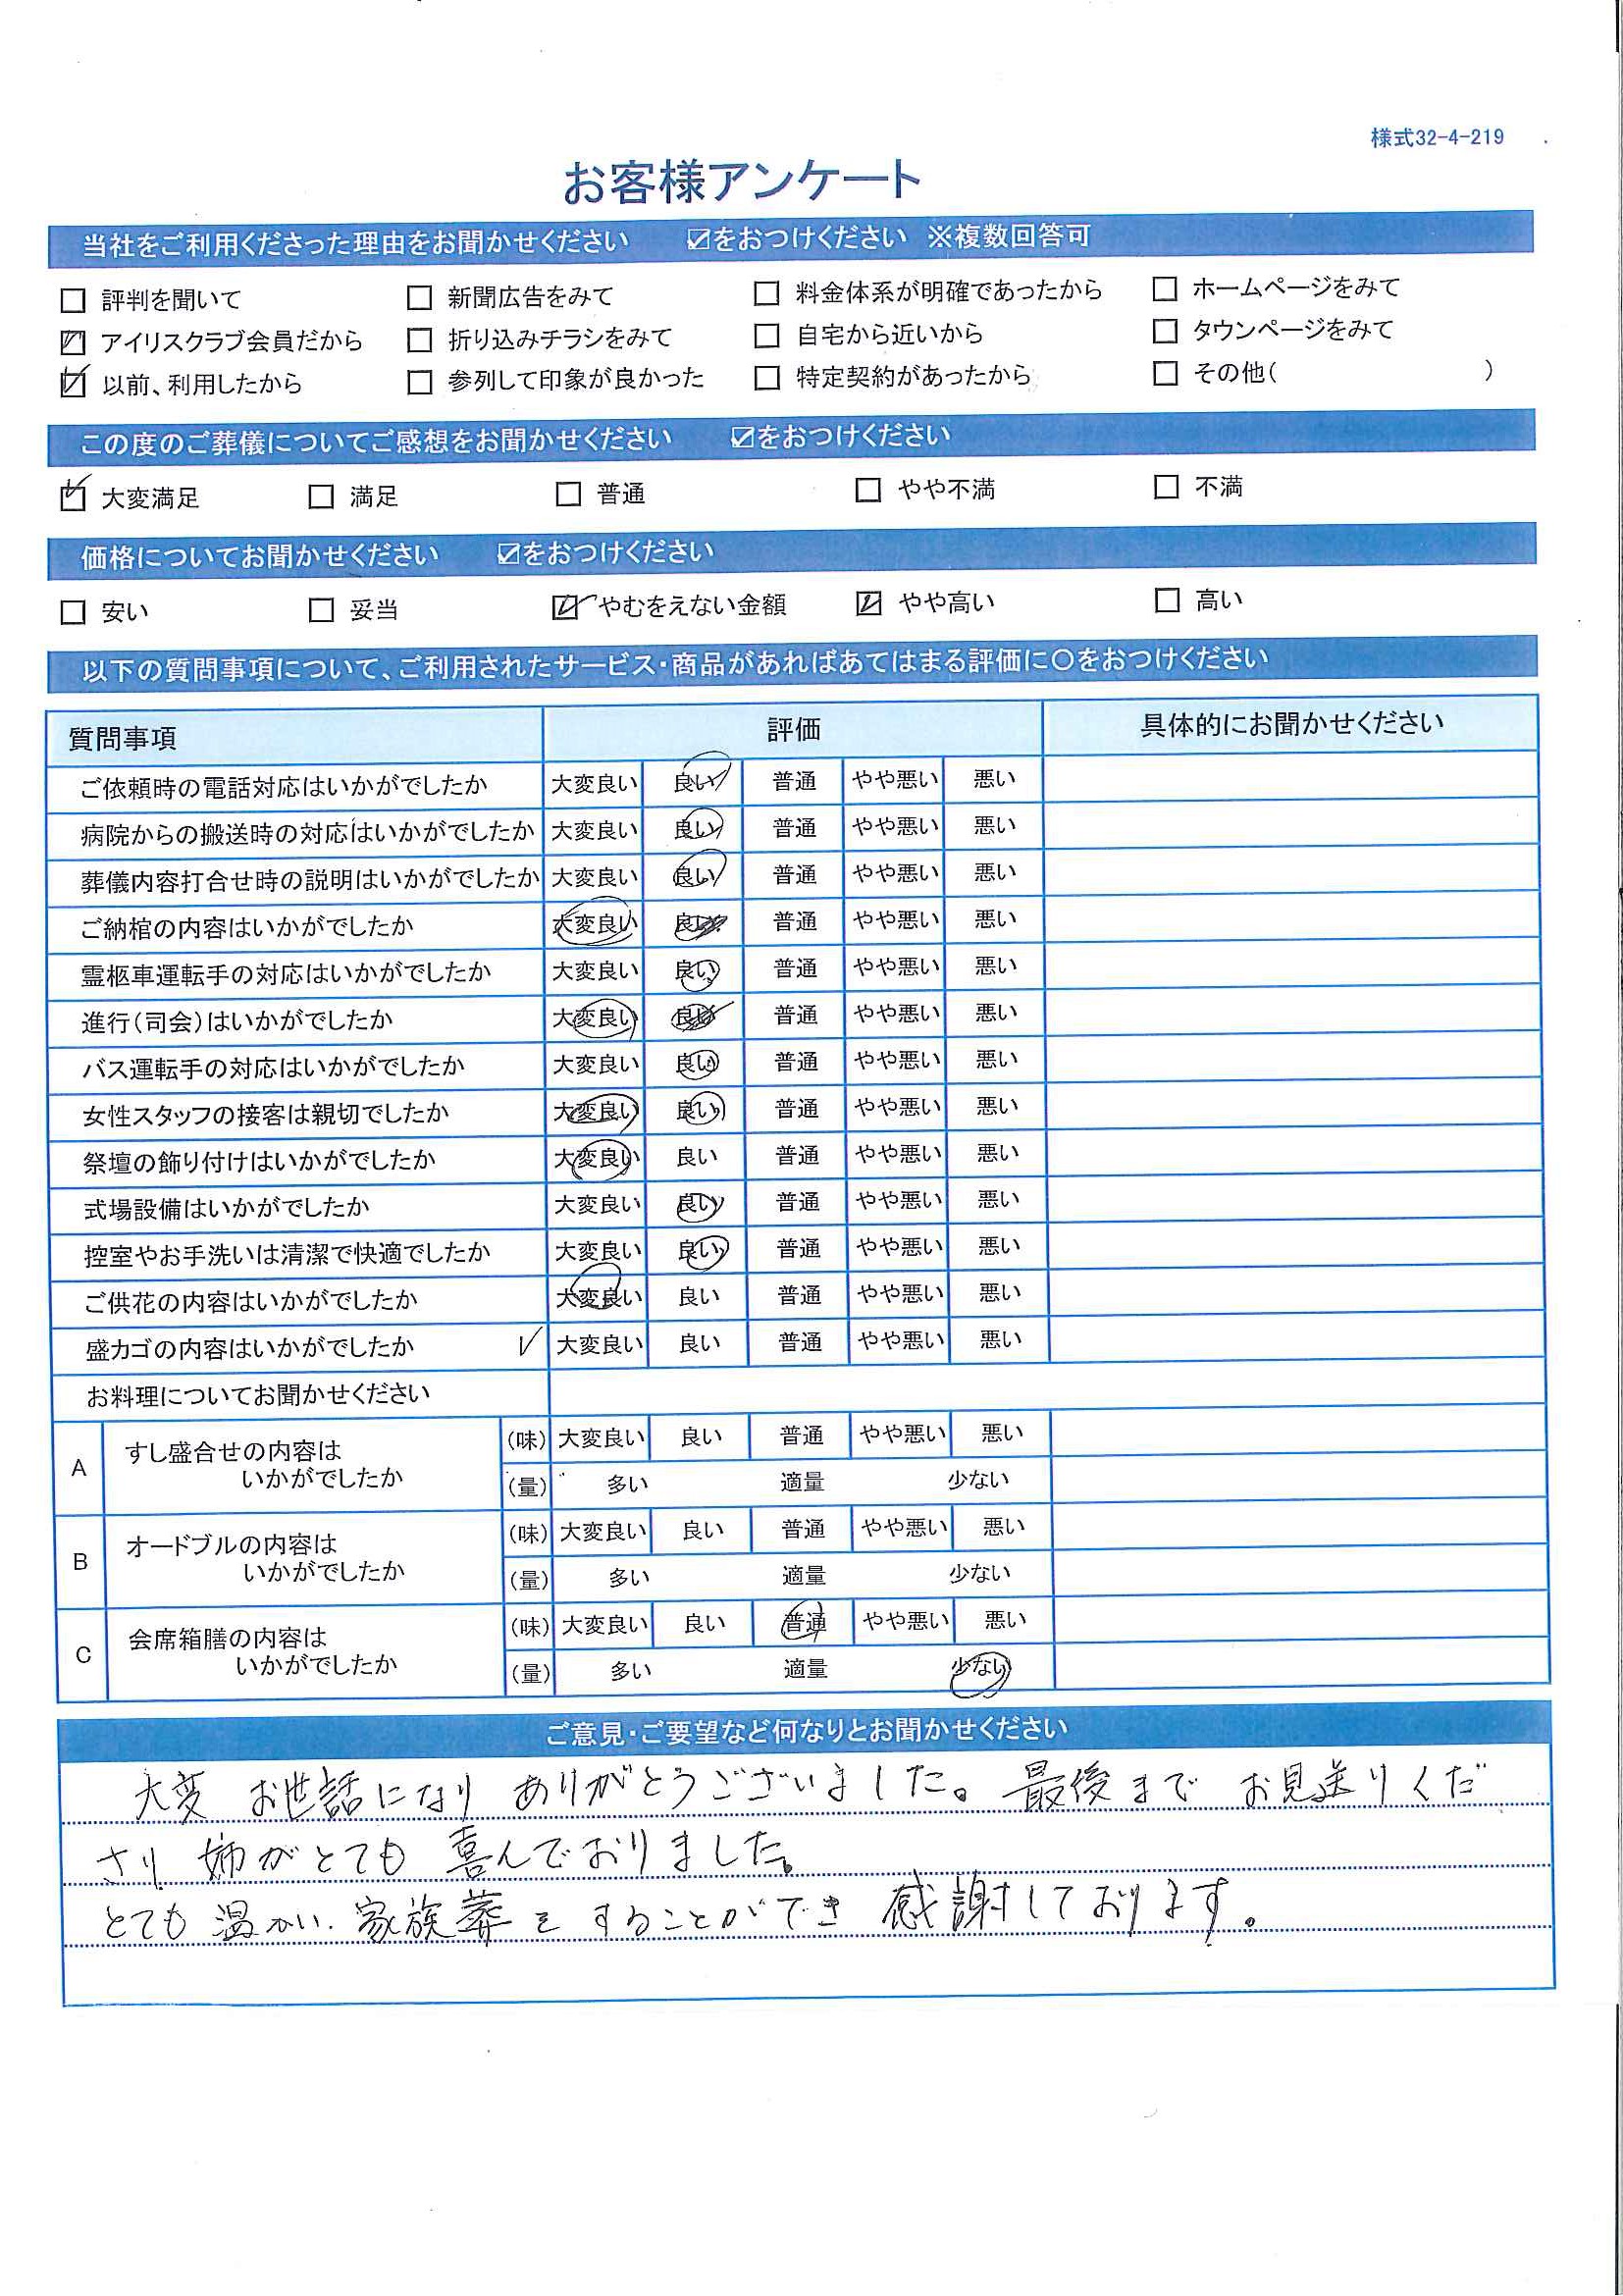 様式32-4-219
お客様アンケート
当社をご利用くださった理由をお聞かせください ☑をおつけください ※複数回答可
□ 評判を聞いて □ 新聞広告をみて □ 料金体系が明確であったから □ ホームページをみて
☑ アイリスクラブ会員だから □ 折り込みチラシをみて □ 自宅から近いから □ タウンページをみて
☑ 以前、利用したから □ 参列して印象が良かった □ 特定契約があったから □ その他( )
この度のご葬儀についてご感想をお聞かせください ☑をおつけください
☑ 大変満足 □ 満足 □ 普通 □ やや不満 □ 不満
価格についてお聞かせください ☑をおつけください
□ 安い □ 妥当 ☑ やむをえない金額 ☑ やや高い □ 高い
以下の質問事項について、ご利用されたサービス・商品があればあてはまる評価に○をおつけください
質問事項 評価 具体的にお聞かせください
ご依頼時の電話対応はいかがでしたか 大変良い 良い 普通 やや悪い 悪い
病院からの搬送時の対応はいかがでしたか 大変良い 良い 普通 やや悪い 悪い
葬儀内容打合せ時の説明はいかがでしたか 大変良い 良い 普通 やや悪い 悪い
ご納棺の内容はいかがでしたか 大変良い 良い 普通 やや悪い 悪い
霊柩車運転手の対応はいかがでしたか 大変良い 良い 普通 やや悪い 悪い
進行(司会)はいかがでしたか 大変良い 良い 普通 やや悪い 悪い
バス運転手の対応はいかがでしたか 大変良い 良い 普通 やや悪い 悪い
女性スタッフの接客は親切でしたか 大変良い 良い 普通 やや悪い 悪い
祭壇の飾り付けはいかがでしたか 大変良い 良い 普通 やや悪い 悪い
式場設備はいかがでしたか 大変良い 良い 普通 やや悪い 悪い
控室やお手洗いは清潔で快適でしたか 大変良い 良い 普通 やや悪い 悪い
ご供花の内容はいかがでしたか 大変良い 良い 普通 やや悪い 悪い
盛カゴの内容はいかがでしたか ✓ 大変良い 良い 普通 やや悪い 悪い
お料理についてお聞かせください
A すし盛合せの内容は (味) 大変良い 良い 普通 やや悪い 悪い
いかがでしたか (量) 多い 適量 少ない
B オードブルの内容は (味) 大変良い 良い 普通 やや悪い 悪い
いかがでしたか (量) 多い 適量 少ない
C 会席箱膳の内容は (味) 大変良い 良い 普通 やや悪い 悪い
いかがでしたか (量) 多い 適量 少ない
ご意見・ご要望など何なりとお聞かせください
大変 お世話になり ありがとうございました。最後まで お見送りくだ
さり 姉がとても 喜んでおりました。
とても 温かい 家族葬を することができ 感謝しております。